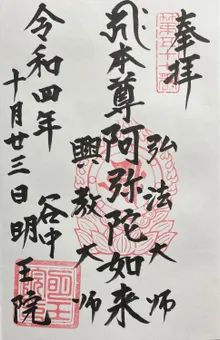 奉拝
本尊阿弥陀如来
弘法大師
興教大師
令和四年
十月廿三日
谷中
明王院
明王院